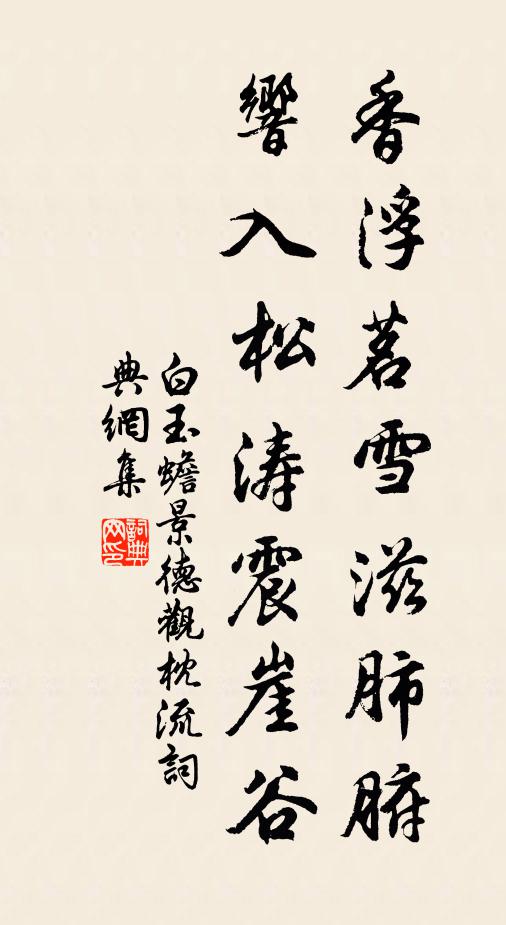 香浮茗雪滋肺腑
響入松涛震崖谷
白玉蟾景德觀枕流詞
典網集
詞典網印